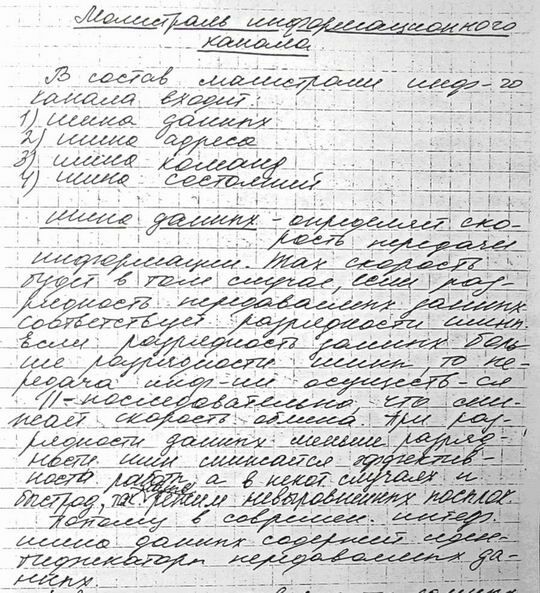 Магистраль информационного
канала
В состав магистрали инф-го
канала входит:
1) шина данных
2) шина адреса
3) шина команд
4) шина состояний
шина данных - определяет ско-
рость передачи
информации. Max скорость
будет в том случае, если раз-
рядность передаваемых данных
соответствует разрядности шины.
Если разрядность данных боль
ше разрядности шины, то пе-
редача инф-ии осуществ-ся
11-последовательно, что сни-
жает скорость обмена. При раз-
рядности данных меньше разряд-
ности шин снижается эффектив-
ность работы, а в некот случаях и
быстрод, режим невыровненных
Поэтому в современ. интерф.
шина данных содержит иден-
тификаторы передаваемых да-
нных.